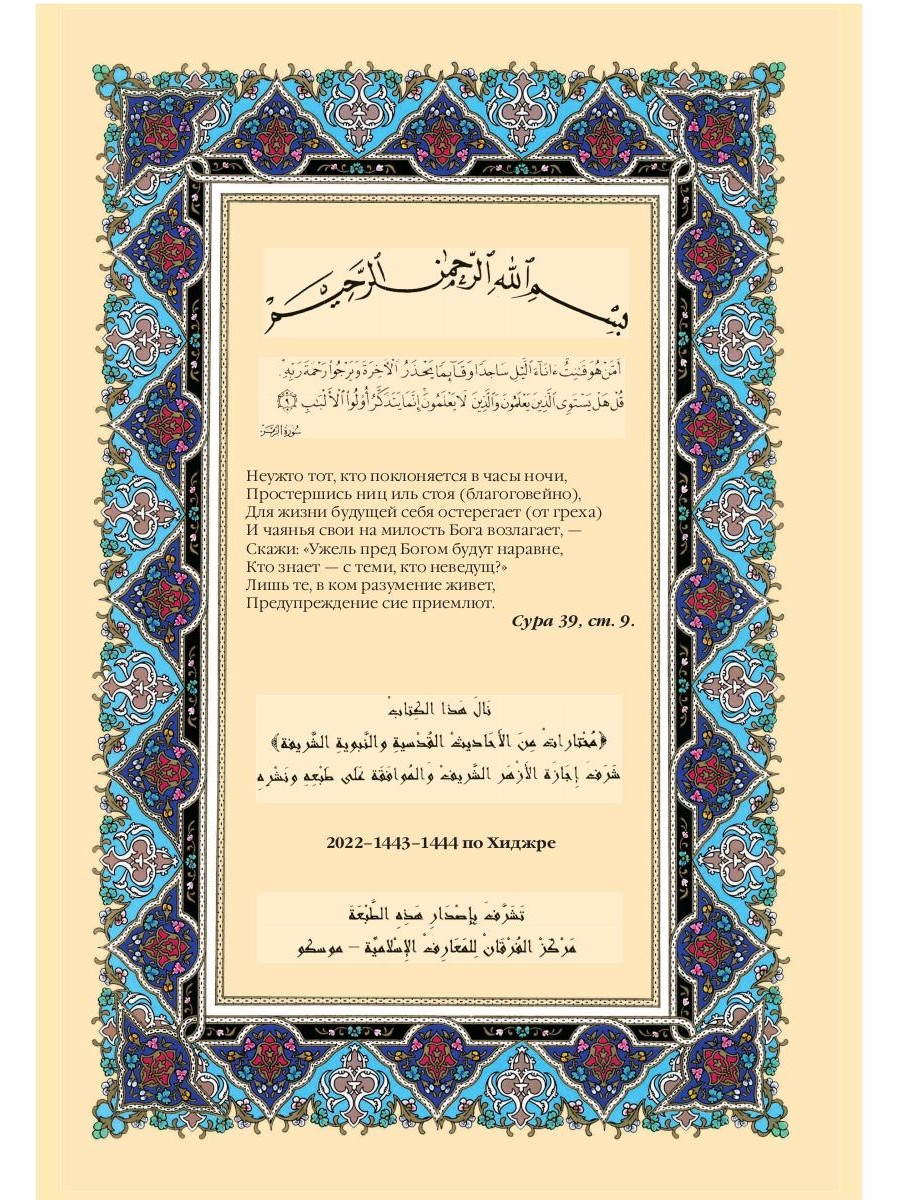 بِسْمِ ٱللَّهِ ٱلرَّحْمَٰنِ ٱلرَّحِيمِ
أَمَّنْ هُوَ قَٰنِتٌ ءَانَآءَ ٱلَّيْلِ سَاجِدًا وَقَآئِمًا يَحْذَرُ ٱلْأَخِرَةَ وَيَرْجُوا۟ رَحْمَةَ رَبِّهِۦ
قُلْ هَلْ يَسْتَوِى ٱلَّذِينَ يَعْلَمُونَ وَٱلَّذِينَ لَا يَعْلَمُونَ إِنَّمَا يَتَذَكَّرُ أُو۟لُوا۟ ٱلْأَلْبَٰبِ ٩
سُورَةُ الزُّمَر
Неужто тот, кто поклоняется в часы ночи,
Простершись ниц иль стоя (благоговейно),
Для жизни будущей себя остерегает (от греха)
И чаянья свои на милость Бога возлагает, —
Скажи: «Ужель пред Богом будут наравне,
Кто знает — с теми, кто неведущ?»
Лишь те, в ком разумение живет,
Предупреждение сие приемлют.
Сура 39, ст. 9.
نَالَ هَذَا الكِتَابْ
﴿مُخْتَارَاتْ مِنَ الأَحَادِيثْ القُدْسِيةِ والنَّبويةِ الشَّرِيفَة﴾
شَرَفَ إِجَازَة الأَزْهَر الشَّرِيفْ وَالمُوافَقَة عَلَى طَبْعِهِ ونَشْرِهِ
2022–1443–1444 по Хиджре
تَشَرَّفَ بِإِصْدَارِ هَذِهِ الطَّبْعَةَ
مَرْكَزْ الفُرْقَانْ لِلمَعَارِفْ الإِسْلاميَّة – موسكو